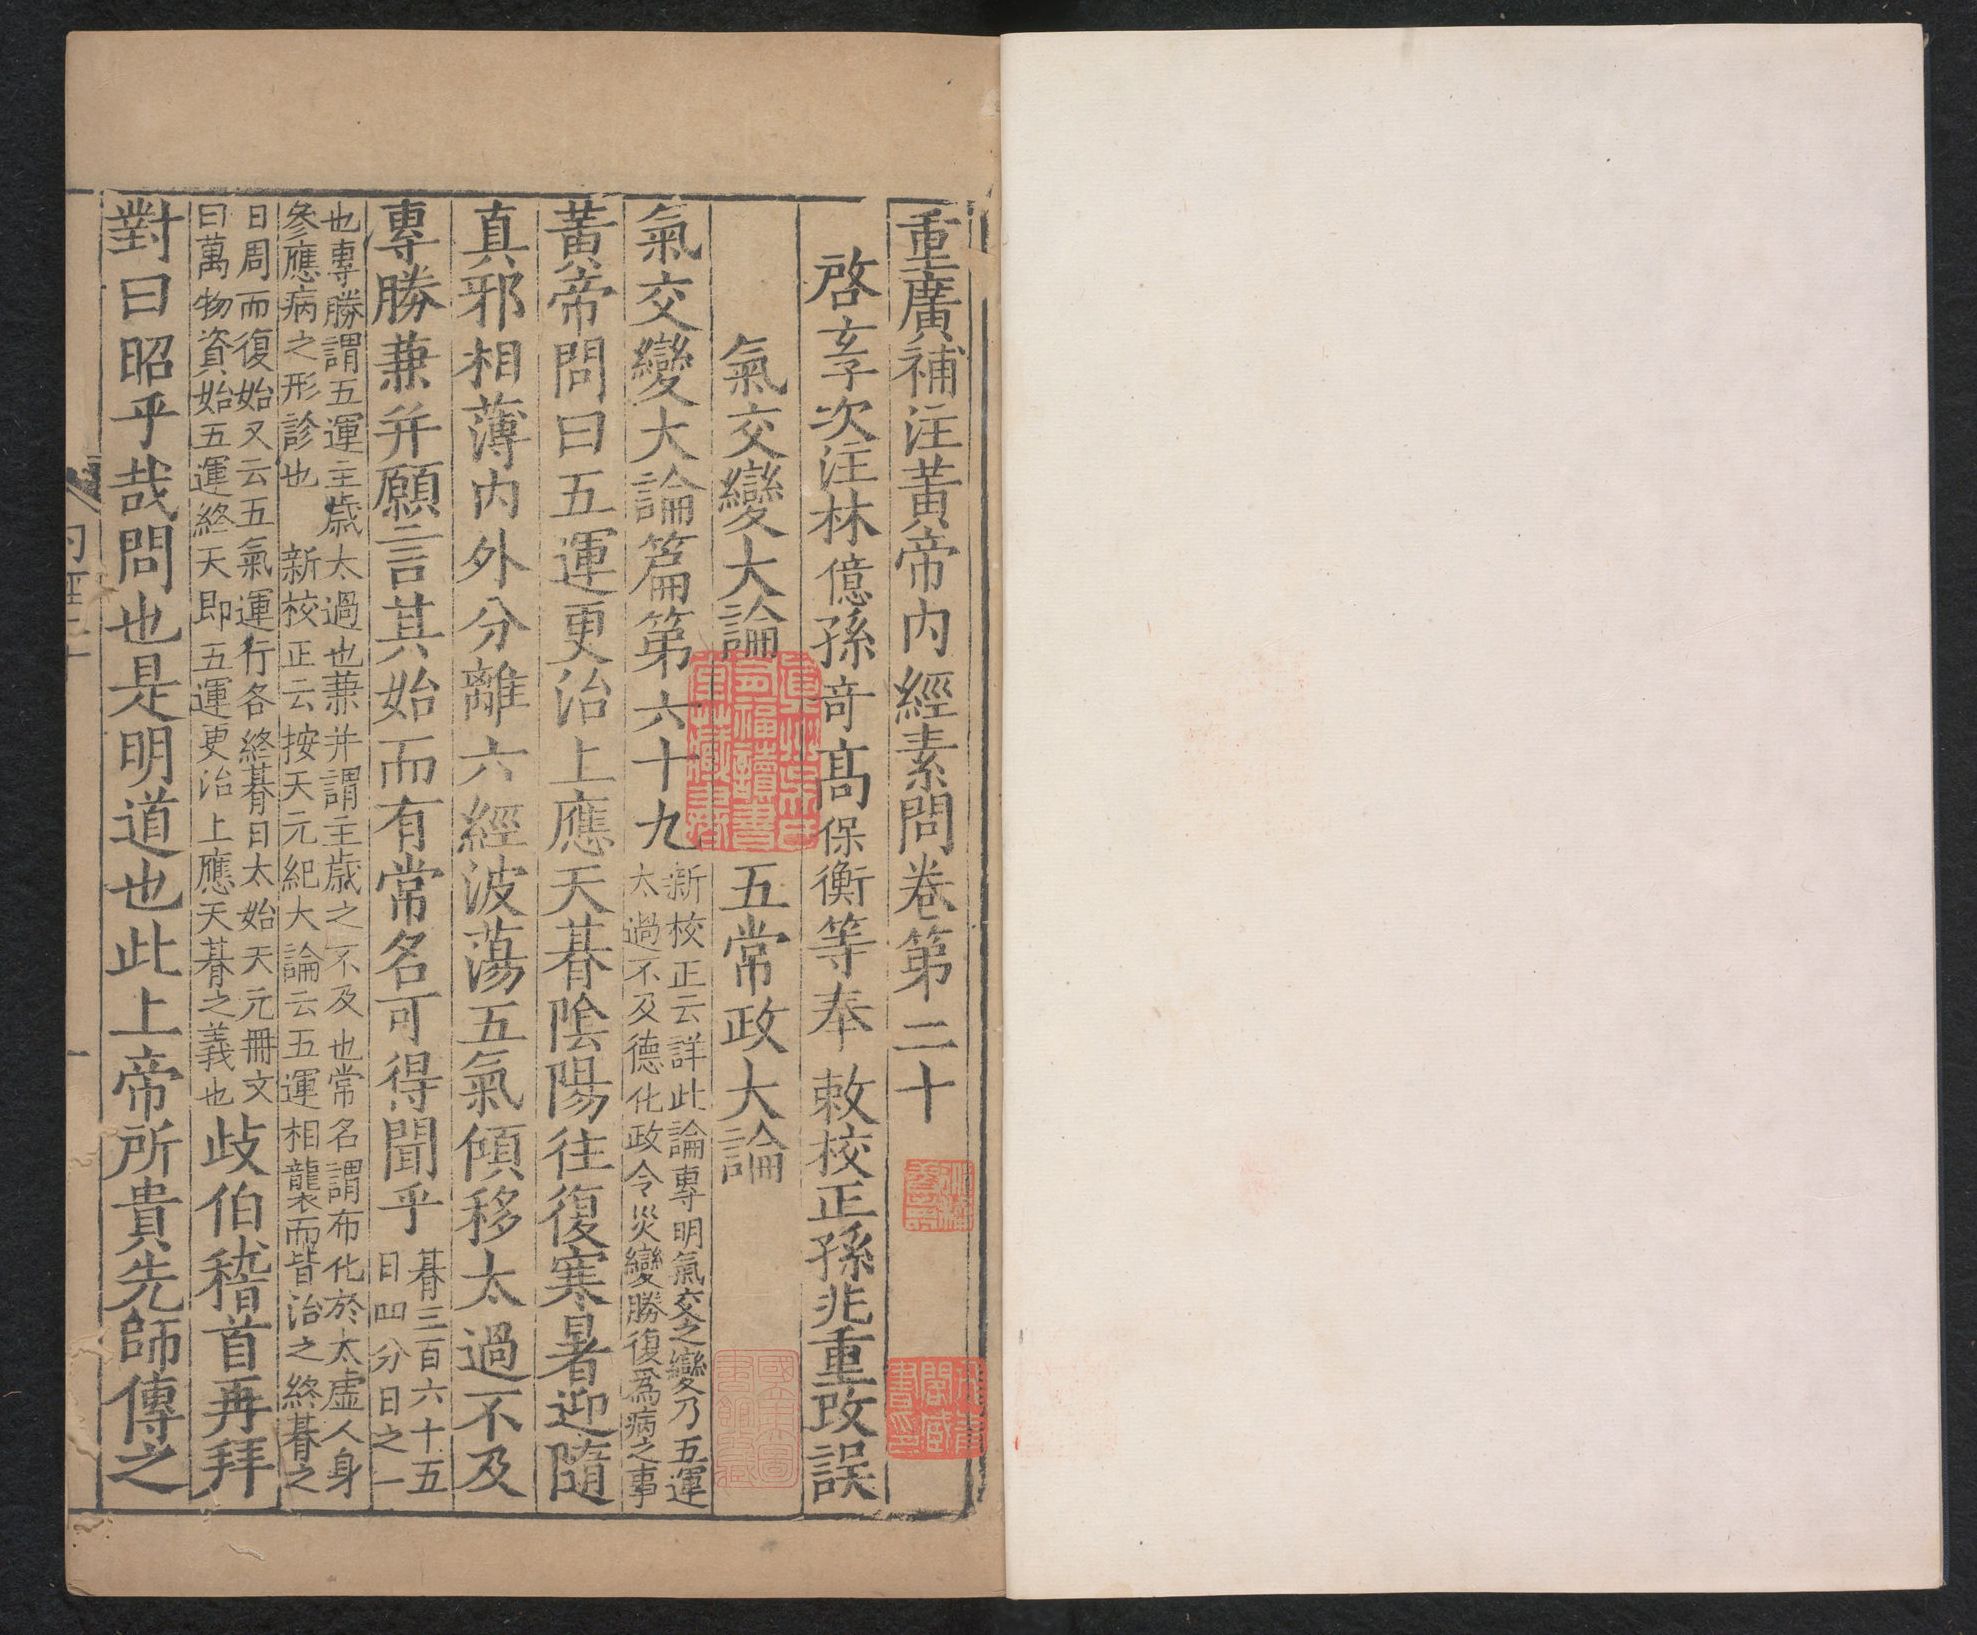 重廣補注黃帝內經素問卷第二十
啓玄子次注林億孫竒髙保衡等奉 敕校正孫兆重改誤
氣交變大論 五常政大論
氣交變大論篇第六十九
新校正云詳此論專明氣交之變乃五運
太過不及德化政令災變勝復爲病之事
黃帝問曰五運更治上應天朞陰陽往復寒暑迎隨
真邪相薄內外分離六經波蕩五氣傾移太過不及
專勝兼并願言其始而有常名可得聞乎
朞三百六十五
日四分日之一
也專勝謂五運主歲太過也兼并謂主歲之不及也常名謂布化於太虛人身
參應病之形診也 新校正云按天元紀大論云五運相襲而皆治之終朞之
日周而復始又云五氣運行各終朞日太始天元冊文
曰萬物資始五運終天即五運更治上應天朞之義也
歧伯稽首再拜
對曰昭乎哉問也是明道也此上帝所貴先師傳之
一